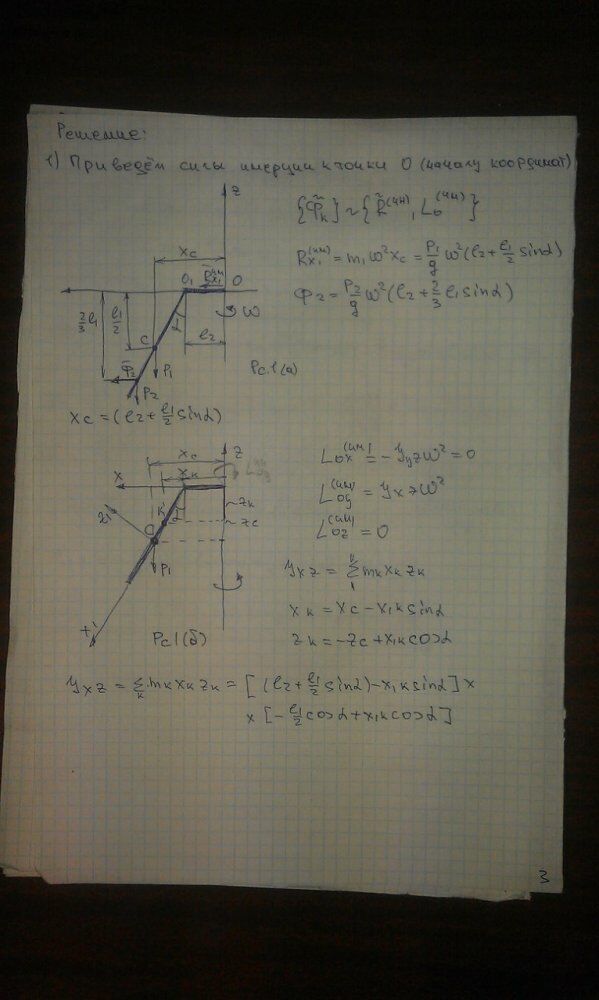 Решение:
1) Приведём силы инерции к точки О (началу координат)
{Φ̃k} ~ {R̃(ин), Lo(ин)}
Rx1(ин) = m1 ω² xc = P1/g ω²(l2 + l1/2 sinα)
Φ2 = P2/g ω²(l2 + 2/3 l1 sinα)
z
xc
O1
O
ω
2/3 l1
l1/2
α
l2
C
P1
Φ2
P2
Рс.1(а)
xc = (l2 + l1/2 sinα)
z
xc
xk
x
zk
zc
K
α
C
P1
Рс1(б)
Lox(ин) = -Jyz ω² = 0
Loy(ин) = Jxz ω²
Loz(ин) = 0
Jxz = Σ mk xk zk
xk = xc - x1k sinα
zk = -zc + x1k cosα
Jxz = Σk mk xk zk = [(l2 + l1/2 sinα) - x1k sinα] ×
× [-l1/2 cosα + x1k cosα]
3